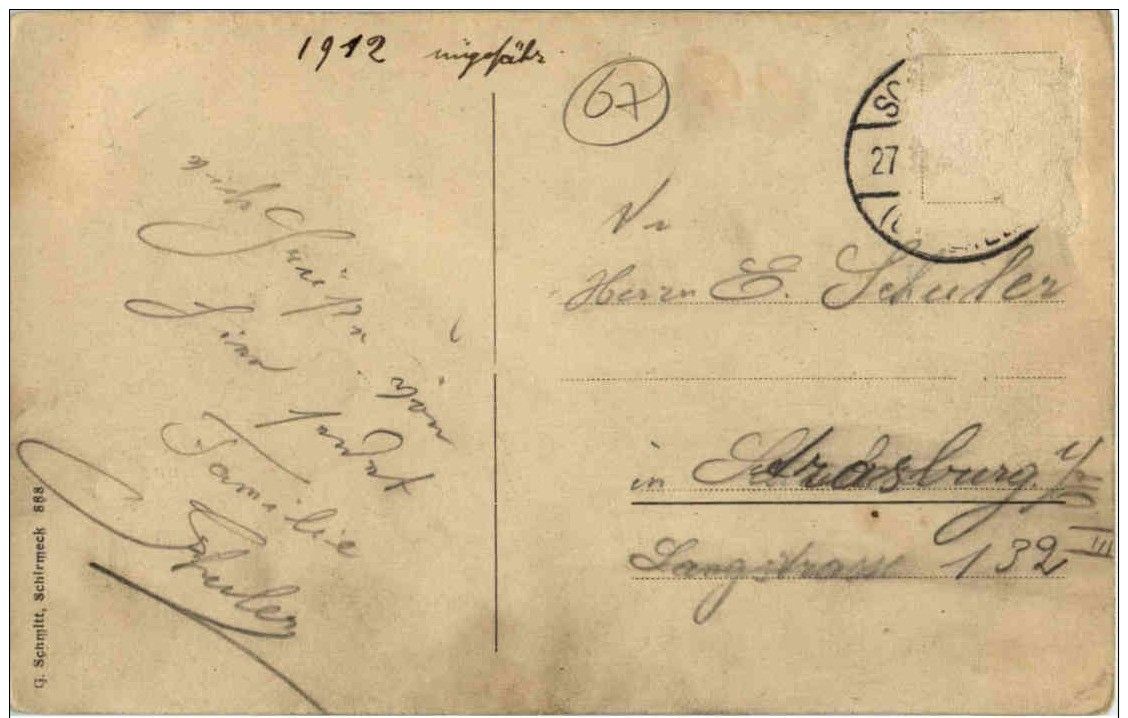 1912 ungefähr
67
27
An
Herrn E. Schuler
in Strasburg i/E
Langstrasse 132 III
sendet
Familie
Schuler
G. Schmitt, Schirmeck 888